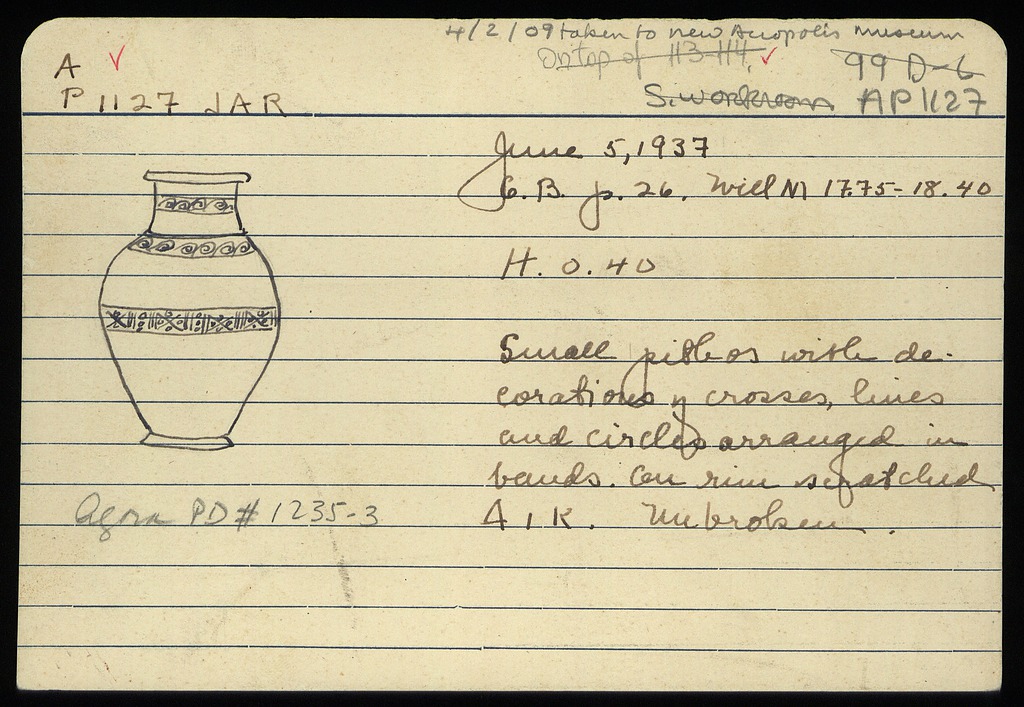 4/2/09 taken to new Acropolis museum
On top of H3-H4 99 D-6
A
P 1127 JAR S. workroom AP 1127
June 5, 1937
G.B. p. 26. Well M 17.75-18.40
H. 0.40
Small pithos with de-
corations of crosses, lines
and circles arranged in
bands. On rim scratched
Δ I K. Unbroken.
Agora PD# 1235-3